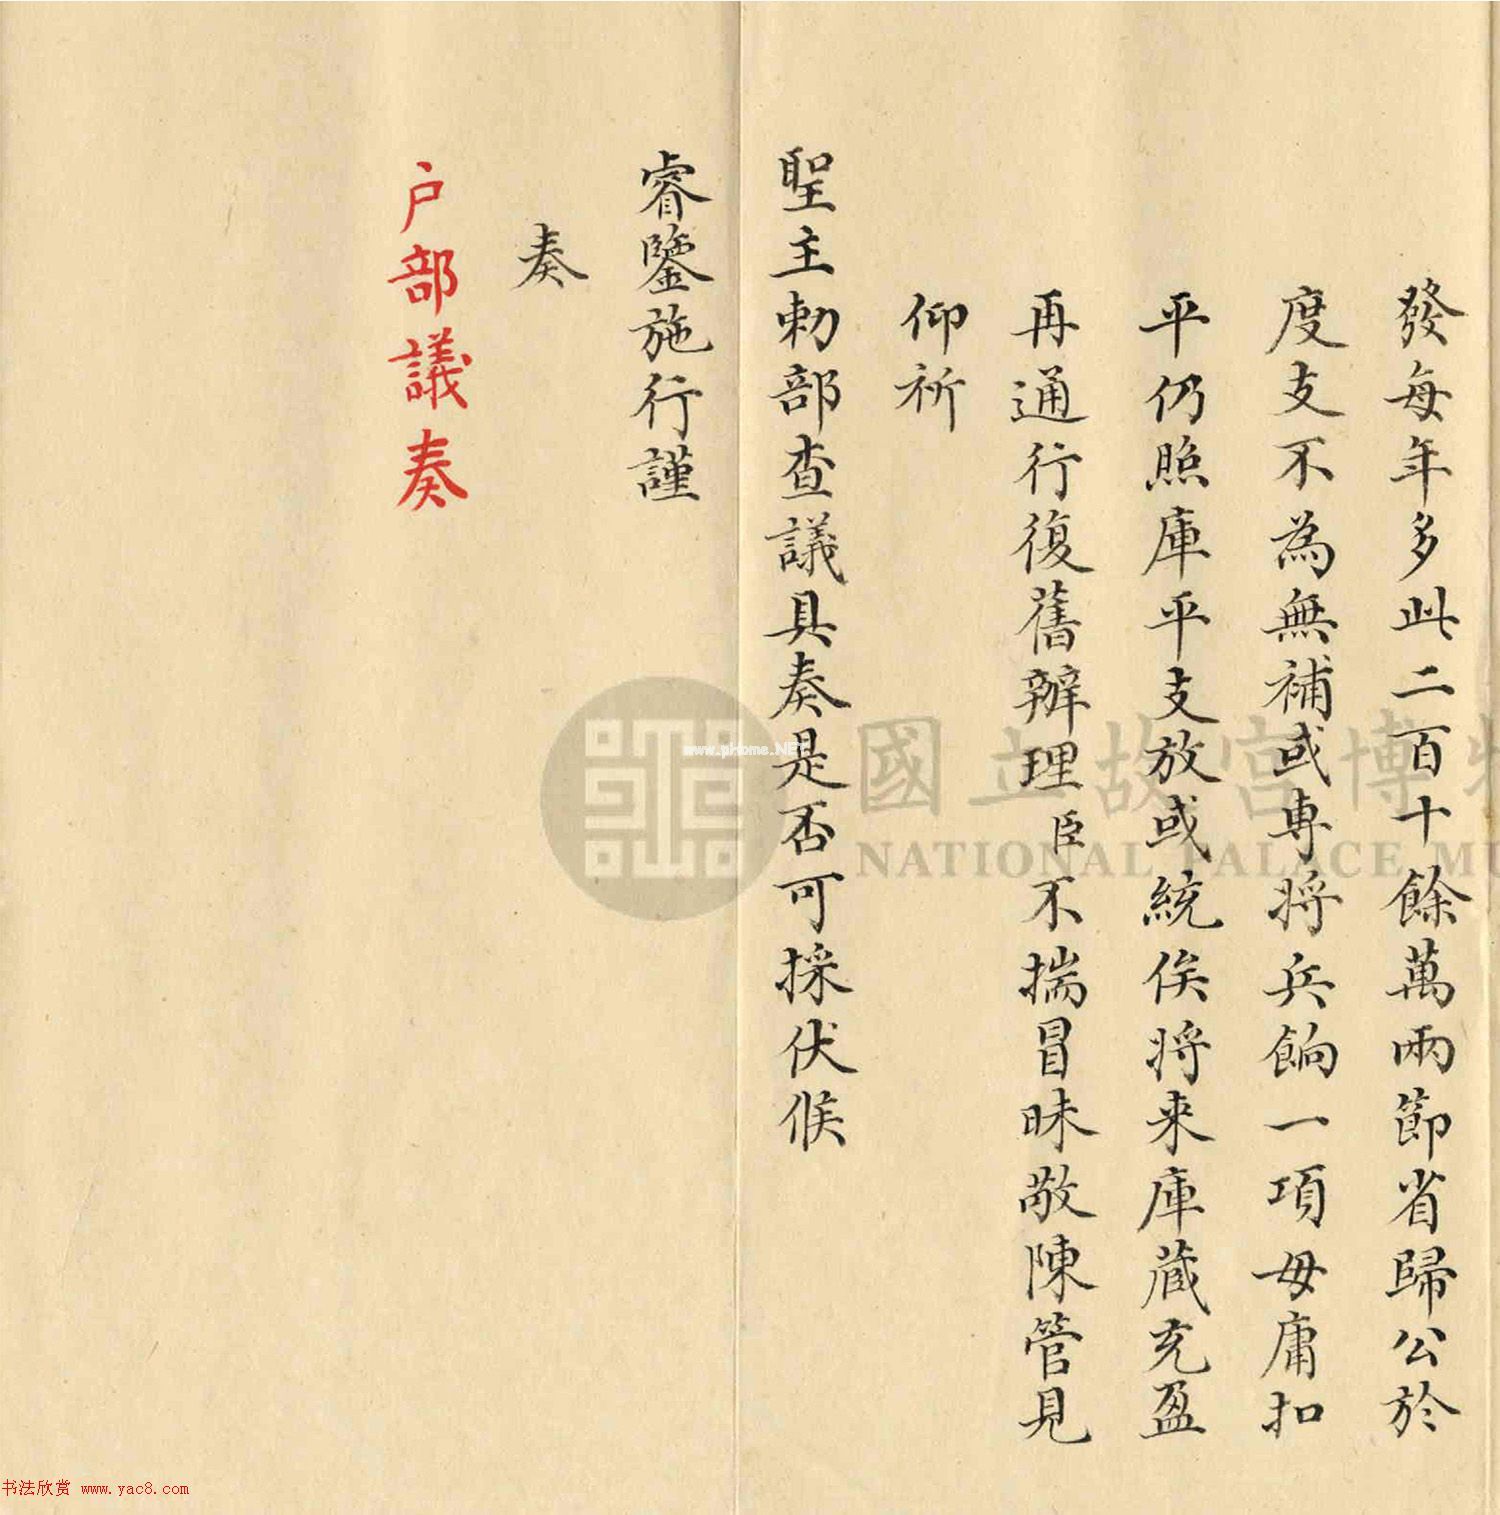 發每年多此二百十餘萬兩節省歸公於
度支不為無補或專將兵餉一項毋庸扣
平仍照庫平支放或統俟將来庫藏充盈
再通行復舊辦理臣不揣冒昧敬陳管見
仰祈
聖主勅部查議具奏是否可採伏候
睿鑒施行謹
奏
户部議奏
國立故宮博物
NATIONAL PALACE MU
www.phome.NET
书法欣赏 www.yac8.com